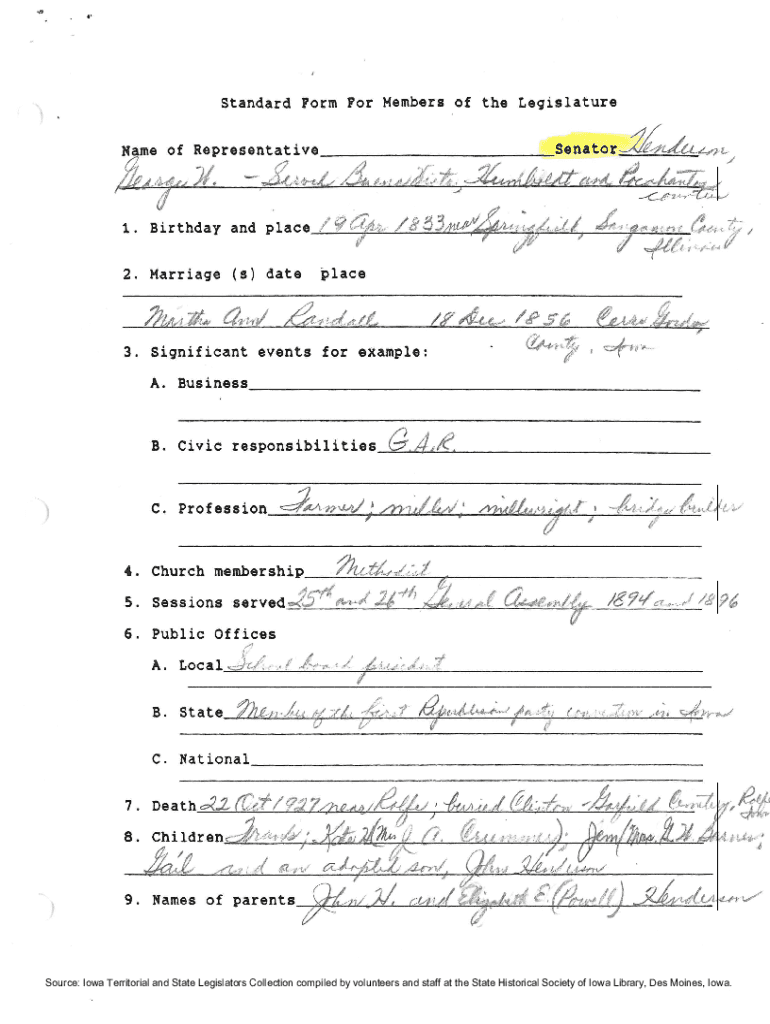 Standard Form For Members of the Legislature
Name of Representative Senator Henderson,
George W. - Served Buena Vista, Humboldt and Pocahontas
counties
1. Birthday and place 19 Apr 1833 near Springfield, Sangamon County,
Illinois
2. Marriage (s) date place
Martha Ann Randall 18 Dec 1856 Cerro Gordo
County, Iowa
3. Significant events for example:
A. Business
B. Civic responsibilities G.A.R.
C. Profession Farmer; miller; millwright; bridge builder
4. Church membership Methodist
5. Sessions served 25th and 26th General Assembly 1894 and 1896
6. Public Offices
A. Local School board president
B. State Member of the first Republican party convention in Iowa
C. National
7. Death 22 Oct 1927 near Rolfe; buried Clinton-Garfield Cemetery, Rolfe
Iowa
8. Children Frank; Kate H (Mrs J. A. Crummer); Jem (Mrs. G. W. Barnes;
Gail and an adopted son, John Henderson
9. Names of parents John H. and Elizabeth E. (Powell) Henderson
Source: Iowa Territorial and State Legislators Collection compiled by volunteers and staff at the State Historical Society of Iowa Library, Des Moines, Iowa.